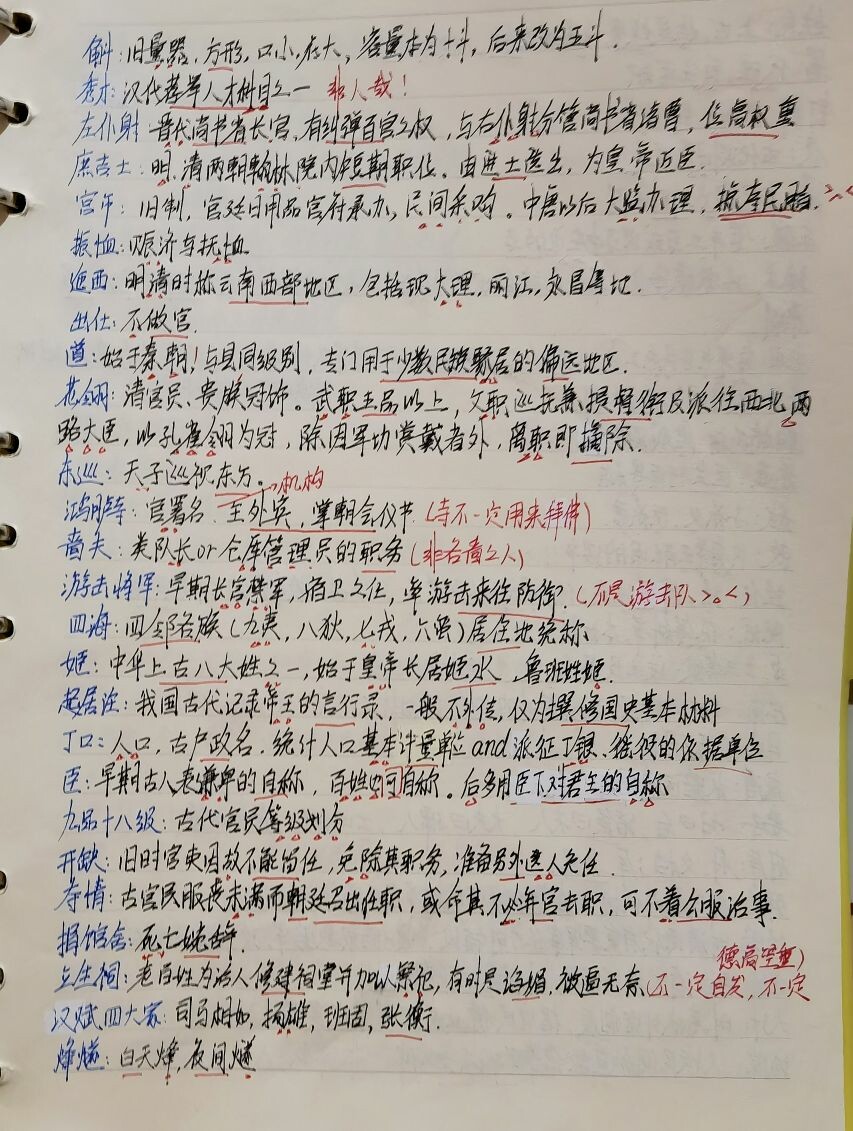 斛：旧量器，方形，口小，底大，容量本为十斗，后来改为五斗．
秀才：汉代荐举人才科目之一 非人哉！
左仆射：晋代尚书省长官，有纠弹百官之权，与右仆射分管尚书省诸曹，位高权重
庶吉士：明，清两朝翰林院内短期职位．由进士选出，为皇帝近臣．
宫市：旧制，宫廷日用品官府承办，民间采购。中唐以后太监办理，掠夺民脂．
振恤：赈济与抚恤
迤西：明清时称云南西部地区，包括现大理，丽江，永昌等地．
出仕：不做官．
道：始于秦朝！与县同级别，专门用于少数民族聚居的偏远地区．
花翎：清官员、贵族冠饰。武职五品以上，文职巡抚兼提督衔及派往西北两
路大臣，以孔雀翎为冠，除因军功赏戴者外，离职即摘除．
东巡：天子巡视东方。
机构
鸿胪寺：官署名．主外宾，掌朝会仪节（寺不一定用来拜佛）
啬夫：类队长or仓库管理员的职务（非吝啬之人）
游击将军：早期长官禁军，宿卫之任，率游击来往防御．（不是游击队>。<）
四海：四邻各族（九夷，八狄，七戎，六蛮）居住地统称
姬：中华上古八大姓之一，始于皇帝长居姬水，鲁班姓姬．
起居注：我国古代记录帝王的言行录，一般不外传，仅为撰修国史基本材料
丁口：人口，古户政名．统计人口基本计量单位and派征丁银、徭役的依据单位
臣：早期古人表谦卑的自称，百姓也可自称。后多用臣下对君主的自称
九品十八级：古代官员等级划分
开缺：旧时官吏因故不能留任，免除其职务，准备另外选人充任．
夺情：古官民服丧未满而朝廷召出任职，或命其不必弃官去职，可不着公服治事．
捐馆舍：死亡婉辞．
立生祠：老百姓为活人修建祠堂并加以祭祀，有时是谄媚，被逼无奈（不一定自发，不一定
德高望重）
汉赋四大家：司马相如，扬雄，班固，张衡．
烽燧：白天烽，夜间燧